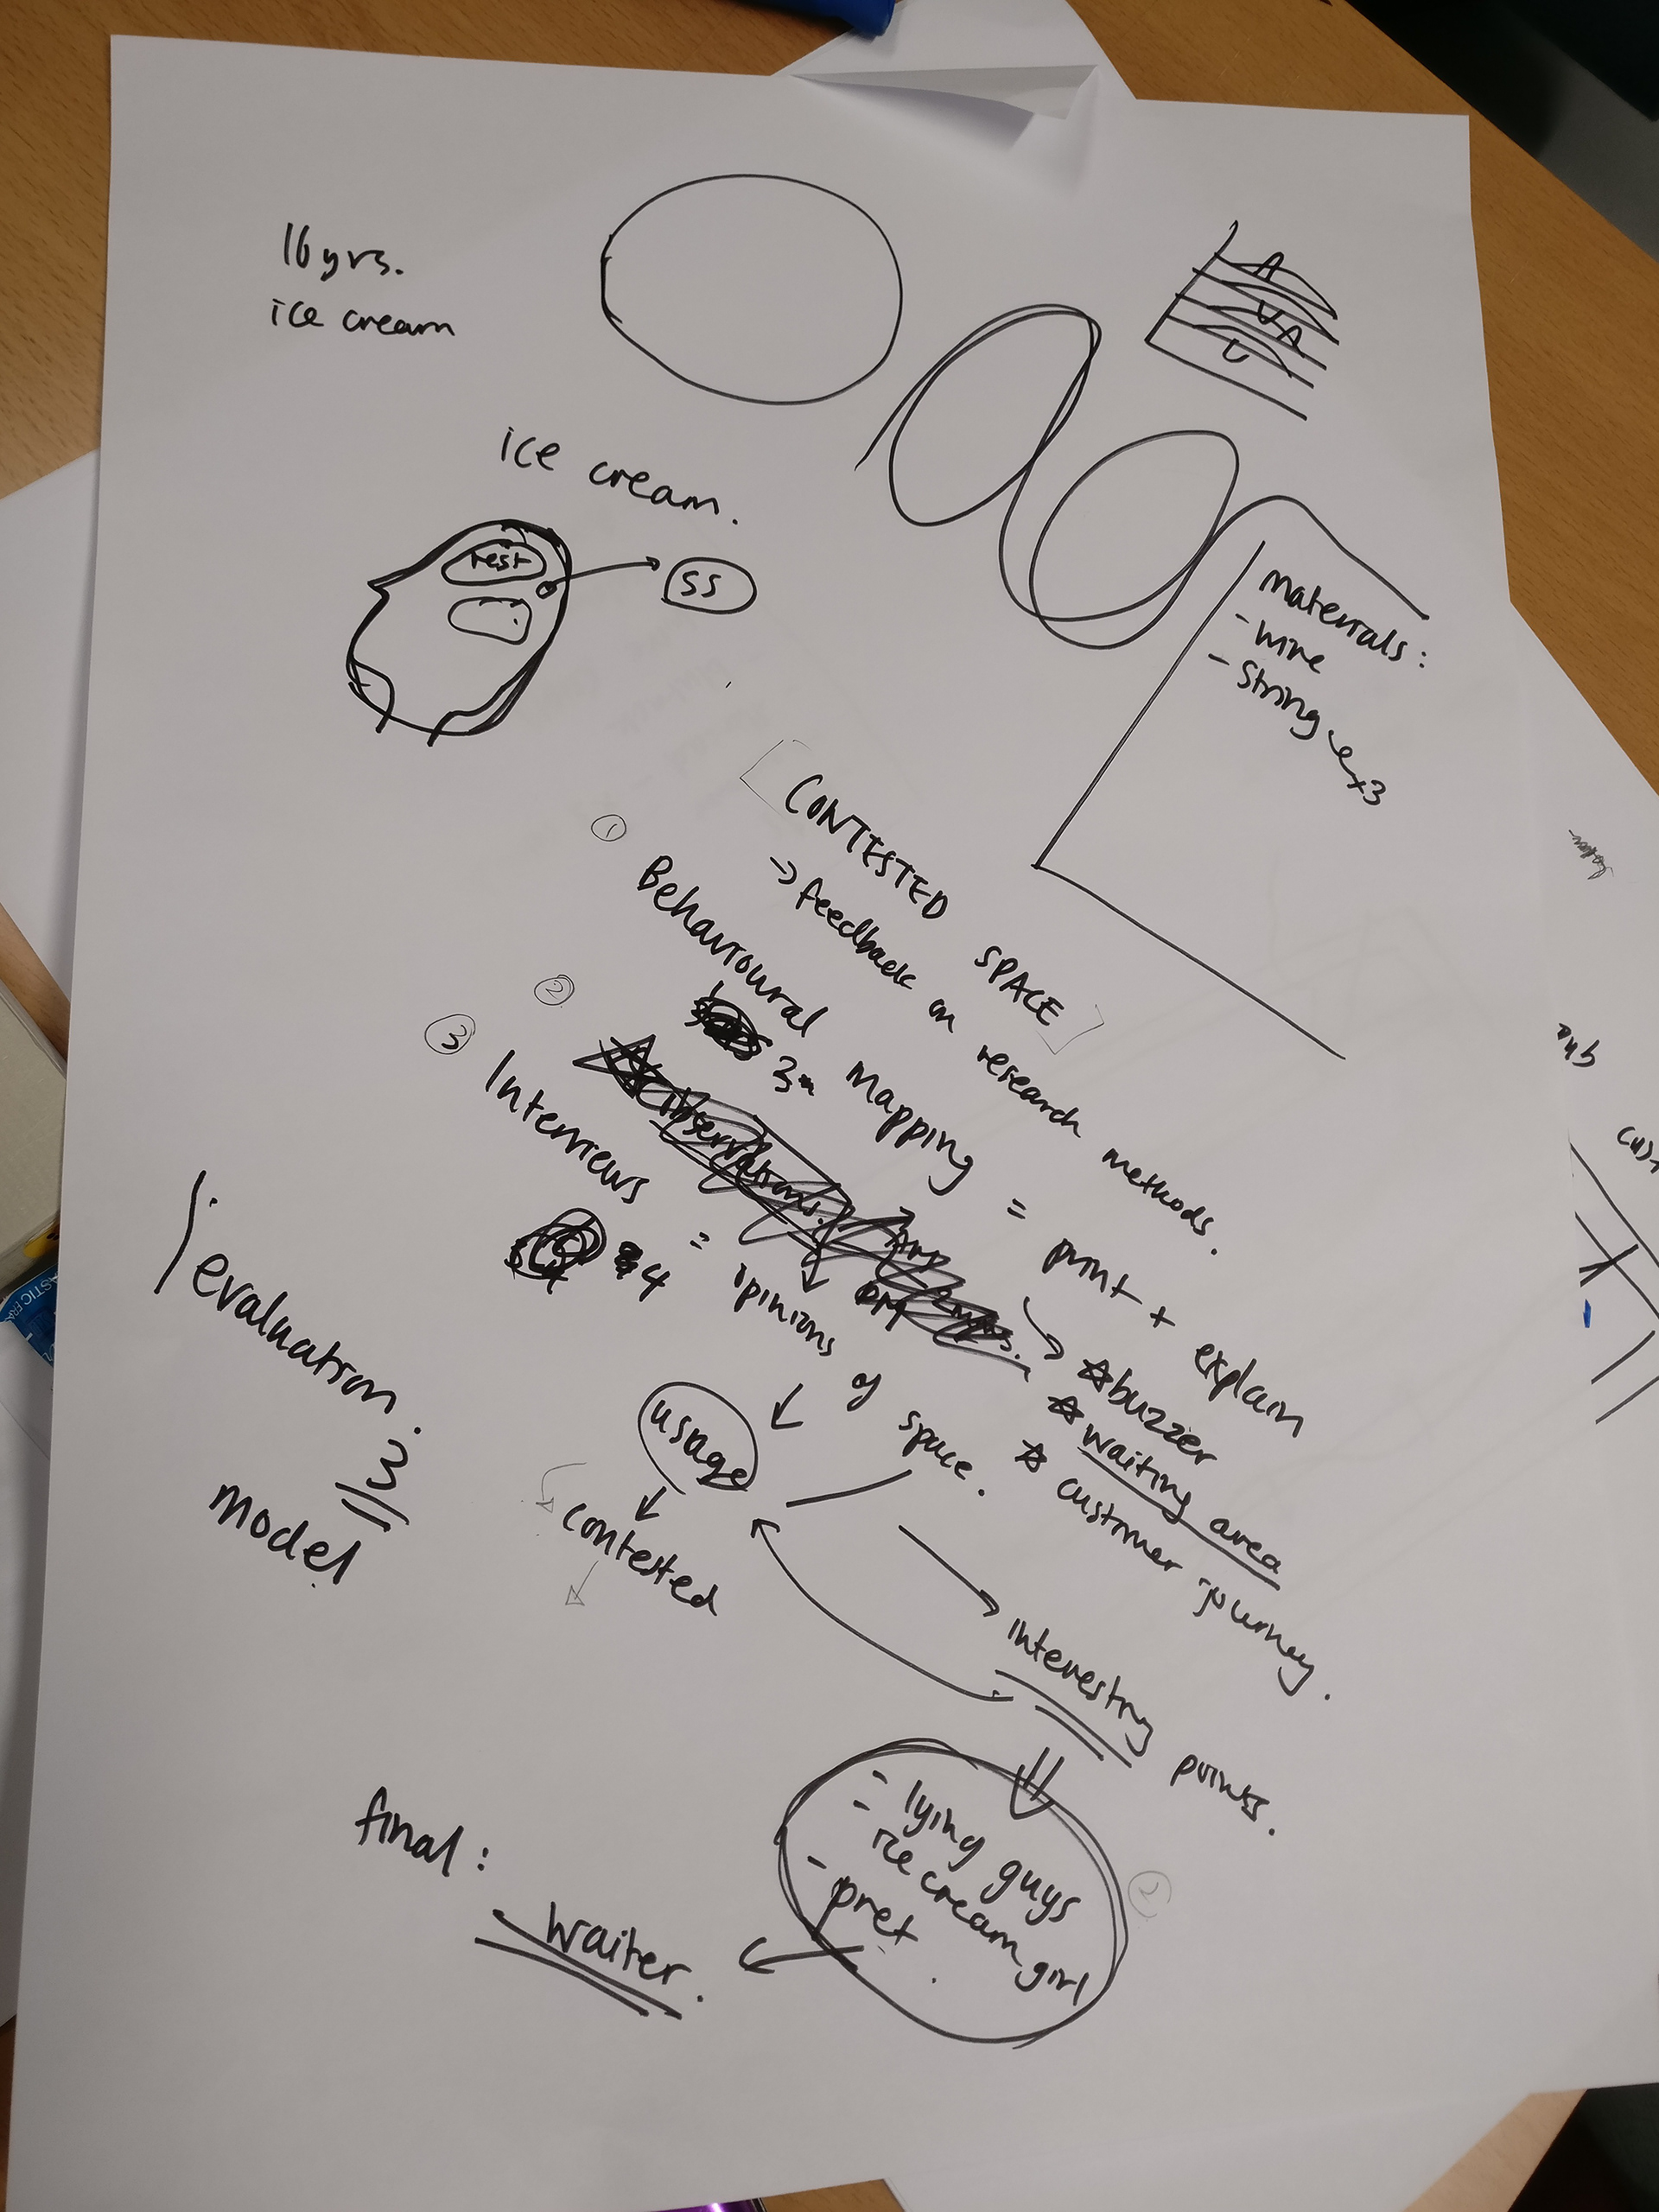 16 yrs.
ice cream
A
U A
U
ice cream.
rest
SS
materials:
- wire
- string x3
CONTESTED SPACE
→ feedback on research methods.
① Behavioural mapping = print + explain
3
☆ buzzer
☆ waiting area
☆ customer journey.
②
observations.
③ Interviews = opinions of space.
4
usage
contested
interesting points.
evaluation.
3
model
- lying guys
- ice cream girl
- pret.
2
final:
waiter.